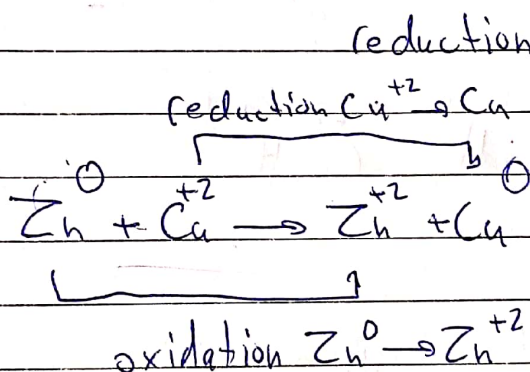 reduction
reduction Cu⁺² → Cu
Zn⁰ + Cu⁺² → Zn⁺² + Cu⁰
oxidation Zn⁰ → Zn⁺²